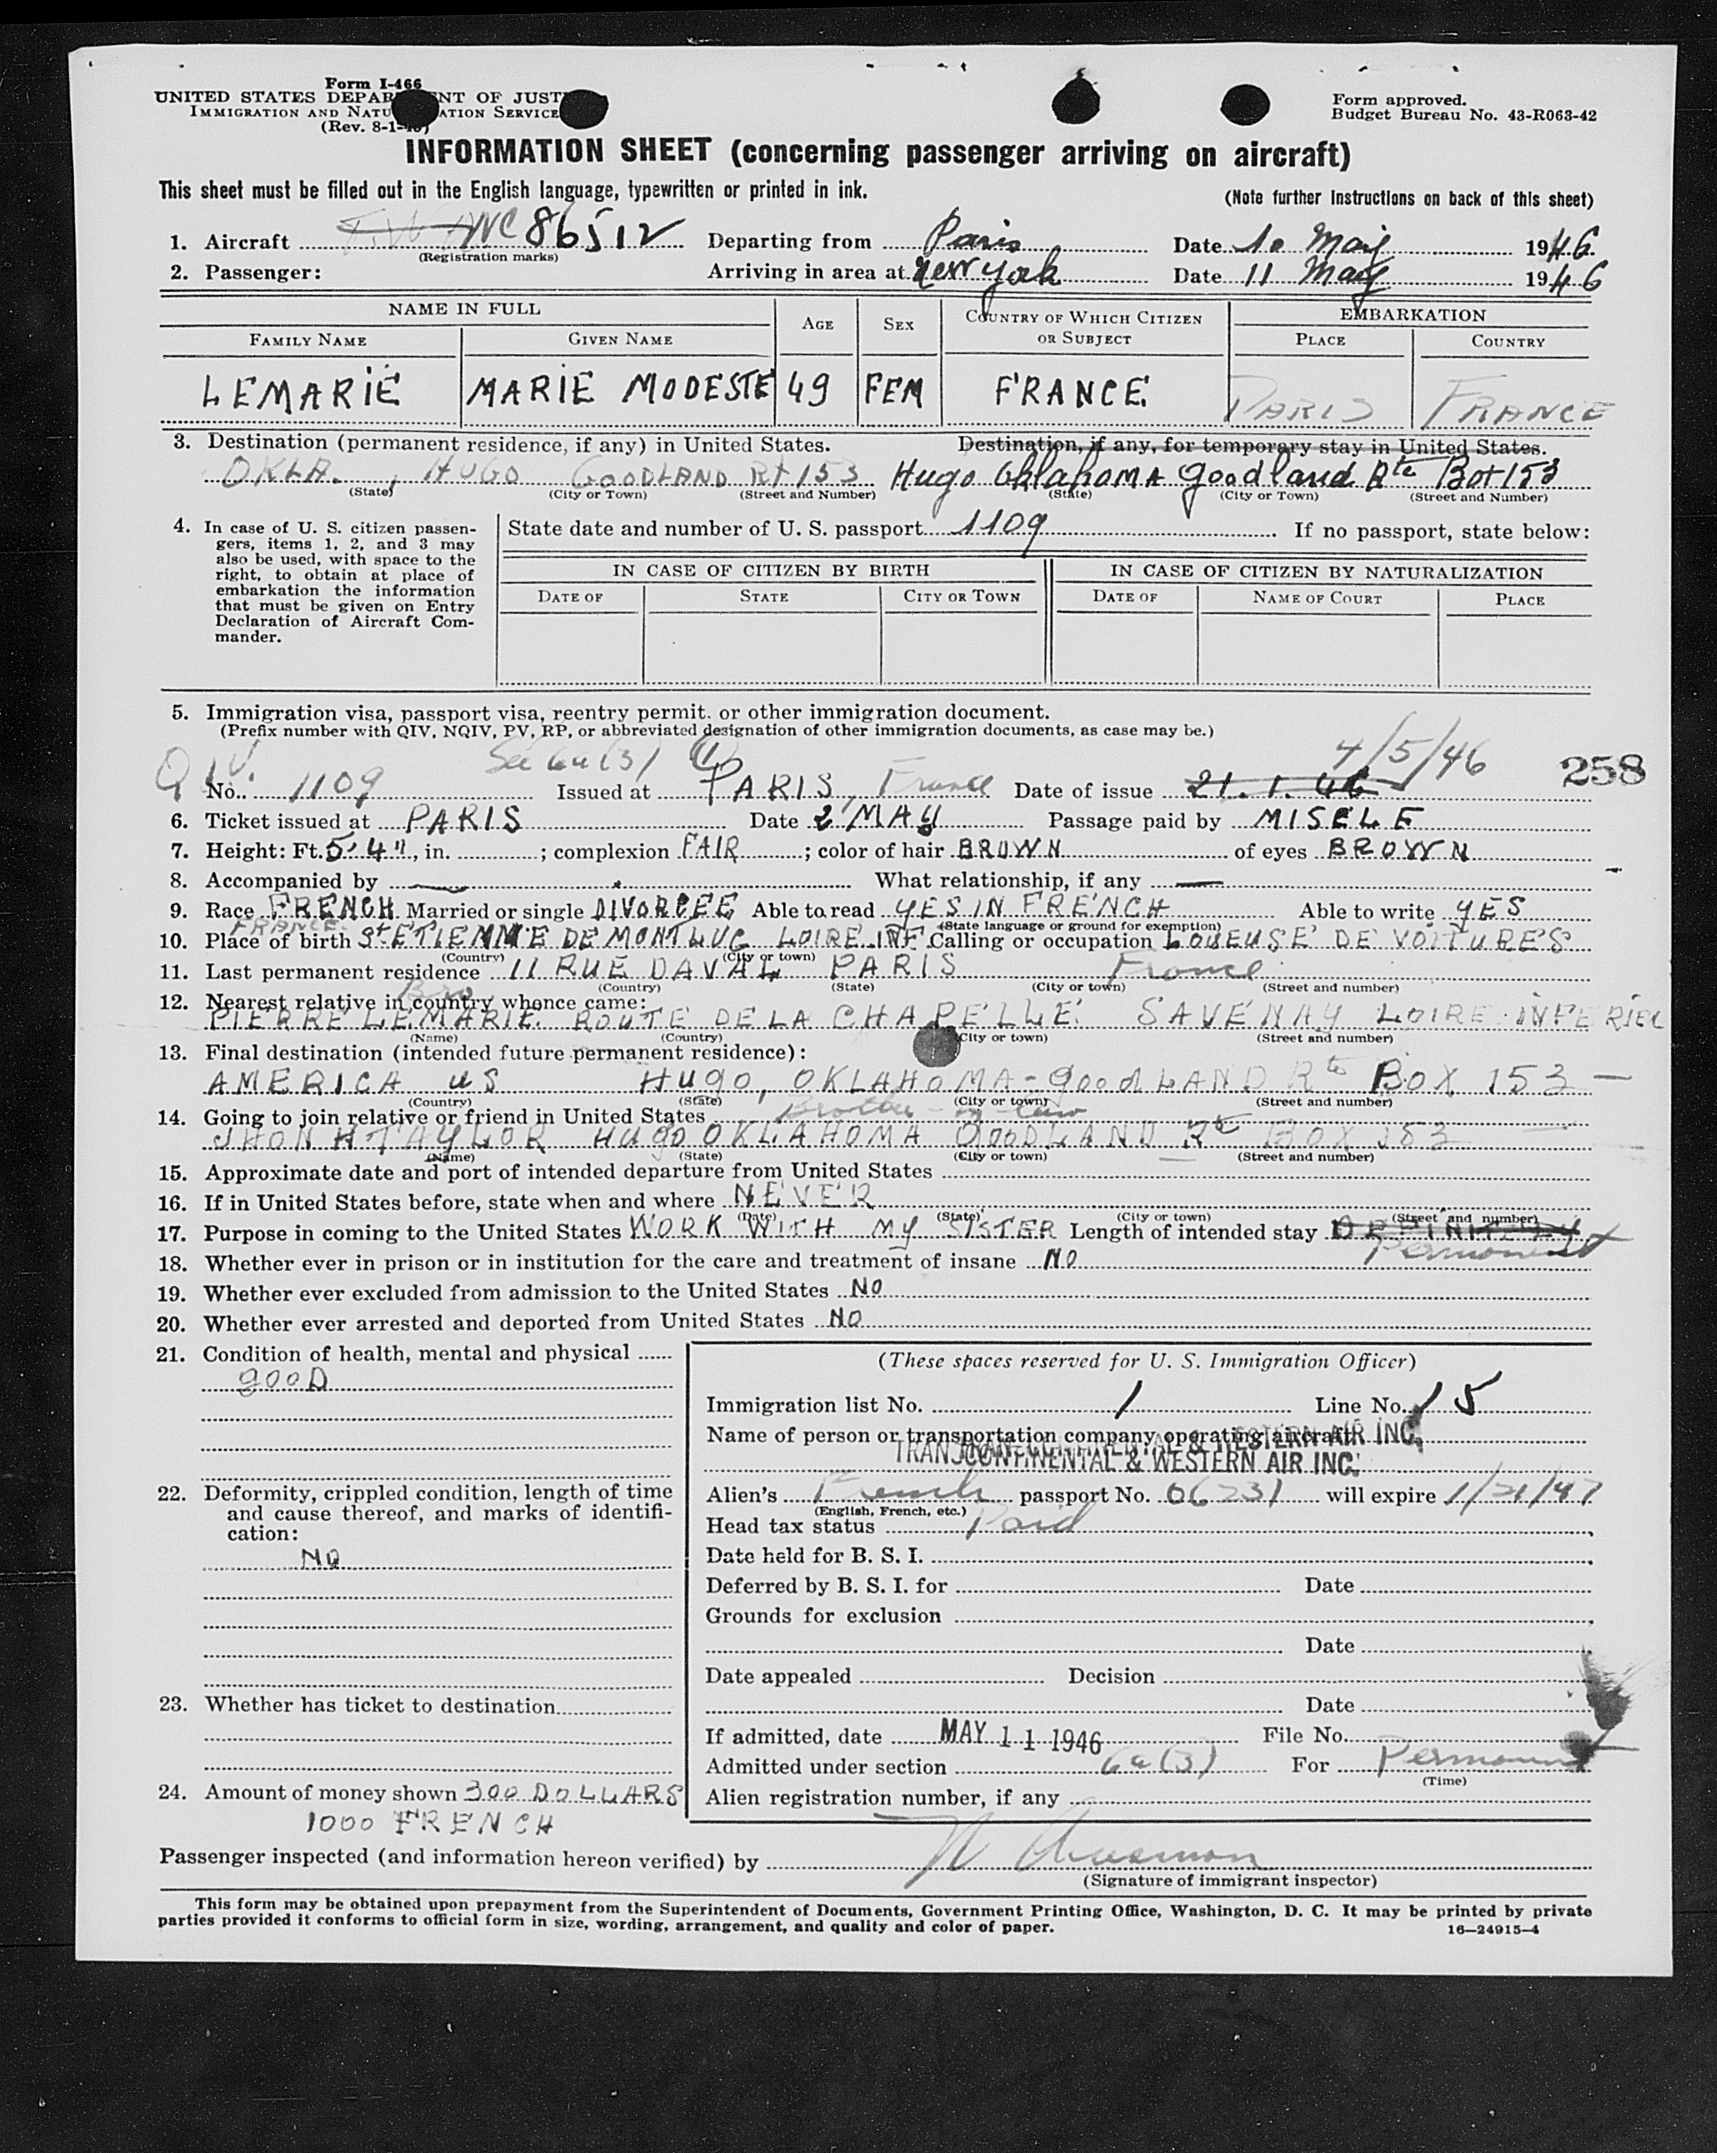 Form I-466
UNITED STATES DEPARTMENT OF JUSTICE
IMMIGRATION AND NATURALIZATION SERVICE
(Rev. 8-1-
Form approved.
Budget Bureau No. 43-R063-42
INFORMATION SHEET (concerning passenger arriving on aircraft)
This sheet must be filled out in the English language, typewritten or printed in ink.
(Note further instructions on back of this sheet)
1. Aircraft NC 86512 Departing from Paris Date 10 May 1946
(Registration marks)
2. Passenger: Arriving in area at New York Date 11 May 1946
NAME IN FULL AGE SEX COUNTRY OF WHICH CITIZEN OR SUBJECT EMBARKATION
FAMILY NAME GIVEN NAME PLACE COUNTRY
LEMARIE MARIE MODESTE 49 FEM FRANCE. PARIS FRANCE
3. Destination (permanent residence, if any) in United States. Destination, if any, for temporary stay in United States.
OKLA., HUGO GOODLAND Rt 153 Hugo Oklahoma Goodland Rte Box 153
(State) (City or Town) (Street and Number) (State) (City or Town) (Street and Number)
4. In case of U. S. citizen passengers, items 1, 2, and 3 may also be used, with space to the right, to obtain at place of embarkation the information that must be given on Entry Declaration of Aircraft Commander.
State date and number of U. S. passport 1109 If no passport, state below:
IN CASE OF CITIZEN BY BIRTH IN CASE OF CITIZEN BY NATURALIZATION
DATE OF STATE CITY OR TOWN DATE OF NAME OF COURT PLACE
5. Immigration visa, passport visa, reentry permit, or other immigration document.
(Prefix number with QIV, NQIV, PV, RP, or abbreviated designation of other immigration documents, as case may be.)
Sec 6a(3) 4/5/46 258
QIV No. 1109 Issued at PARIS, France Date of issue 21.1.46
6. Ticket issued at PARIS Date 2 MAY Passage paid by MISELE
7. Height: Ft. 5'4", in. ; complexion FAIR ; color of hair BROWN of eyes BROWN
8. Accompanied by — What relationship, if any —
9. Race FRENCH Married or single DIVORCEE Able to read YES IN FRENCH Able to write YES
FRANCE (State language or ground for exemption)
10. Place of birth St ETIENNE DE MONTLUC LOIRE INF Calling or occupation LOUEUSE DE VOITURES
(Country) (City or town)
11. Last permanent residence 11 RUE DAVAL PARIS France
(Country) (State) (City or town) (Street and number)
12. Nearest relative in country whence came: Bro
PIERRE LEMARIE. ROUTE DE LA CHAPELLE. SAVENAY LOIRE INFERIEU
(Name) (Country) (City or town) (Street and number)
13. Final destination (intended future permanent residence):
AMERICA US HUGO, OKLAHOMA - GoodLAND Rte BOX 153 —
(Country) (State) (City or town) (Street and number)
14. Going to join relative or friend in United States Brother-in-law
JHON H TAYLOR HUGO OKLAHOMA GOODLAND Rte BOX 153
(Name) (State) (City or town) (Street and number)
15. Approximate date and port of intended departure from United States
16. If in United States before, state when and where NEVER
(Date) (State) (City or town) (Street and number)
17. Purpose in coming to the United States WORK WITH MY SISTER Length of intended stay Permanent
18. Whether ever in prison or in institution for the care and treatment of insane NO
19. Whether ever excluded from admission to the United States NO
20. Whether ever arrested and deported from United States NO
21. Condition of health, mental and physical
gooD
22. Deformity, crippled condition, length of time and cause thereof, and marks of identification:
NO
23. Whether has ticket to destination
24. Amount of money shown 300 DOLLARS
1000 FRENCH
(These spaces reserved for U. S. Immigration Officer)
Immigration list No. 1 Line No. 15
Name of person or transportation company operating aircraft
TRANSCONTINENTAL & WESTERN AIR INC.
TRANSCONTINENTAL & WESTERN AIR INC.
Alien's French passport No. 06231 will expire 1/21/47
(English, French, etc.)
Head tax status Paid
Date held for B. S. I.
Deferred by B. S. I. for Date
Grounds for exclusion
Date
Date appealed Decision
Date
If admitted, date MAY 11 1946 File No.
Admitted under section 6a(3) For Permanent
(Time)
Alien registration number, if any
Passenger inspected (and information hereon verified) by
(Signature of immigrant inspector)
This form may be obtained upon prepayment from the Superintendent of Documents, Government Printing Office, Washington, D. C. It may be printed by private
parties provided it conforms to official form in size, wording, arrangement, and quality and color of paper.
16—24915-4